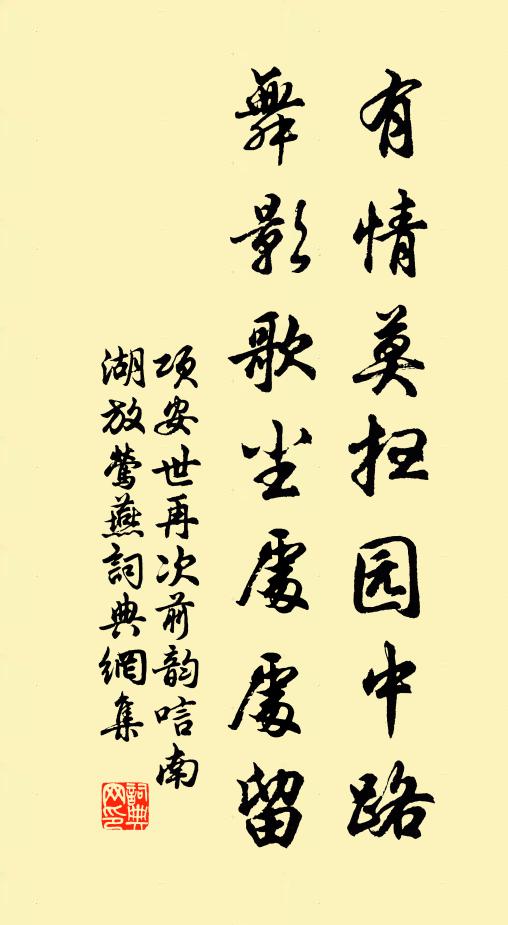 有情莫扫园中路
舞影歌尘處處留
项安世再次前韵唁南
湖放鶯燕詞典網集
詞典
网印